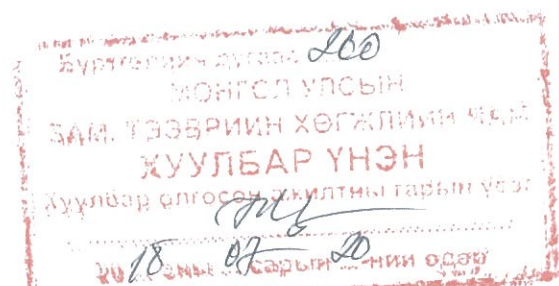 Бүртгэлийн дугаар 200
МОНГОЛ УЛСЫН
ЗАМ, ТЭЭВРИЙН ХӨГЖЛИЙН ЯАМ
ХУУЛБАР ҮНЭН
Хуулбар олгосон ажилтны гарын үсэг
2018 оны 07 сарын 20-ний өдөр